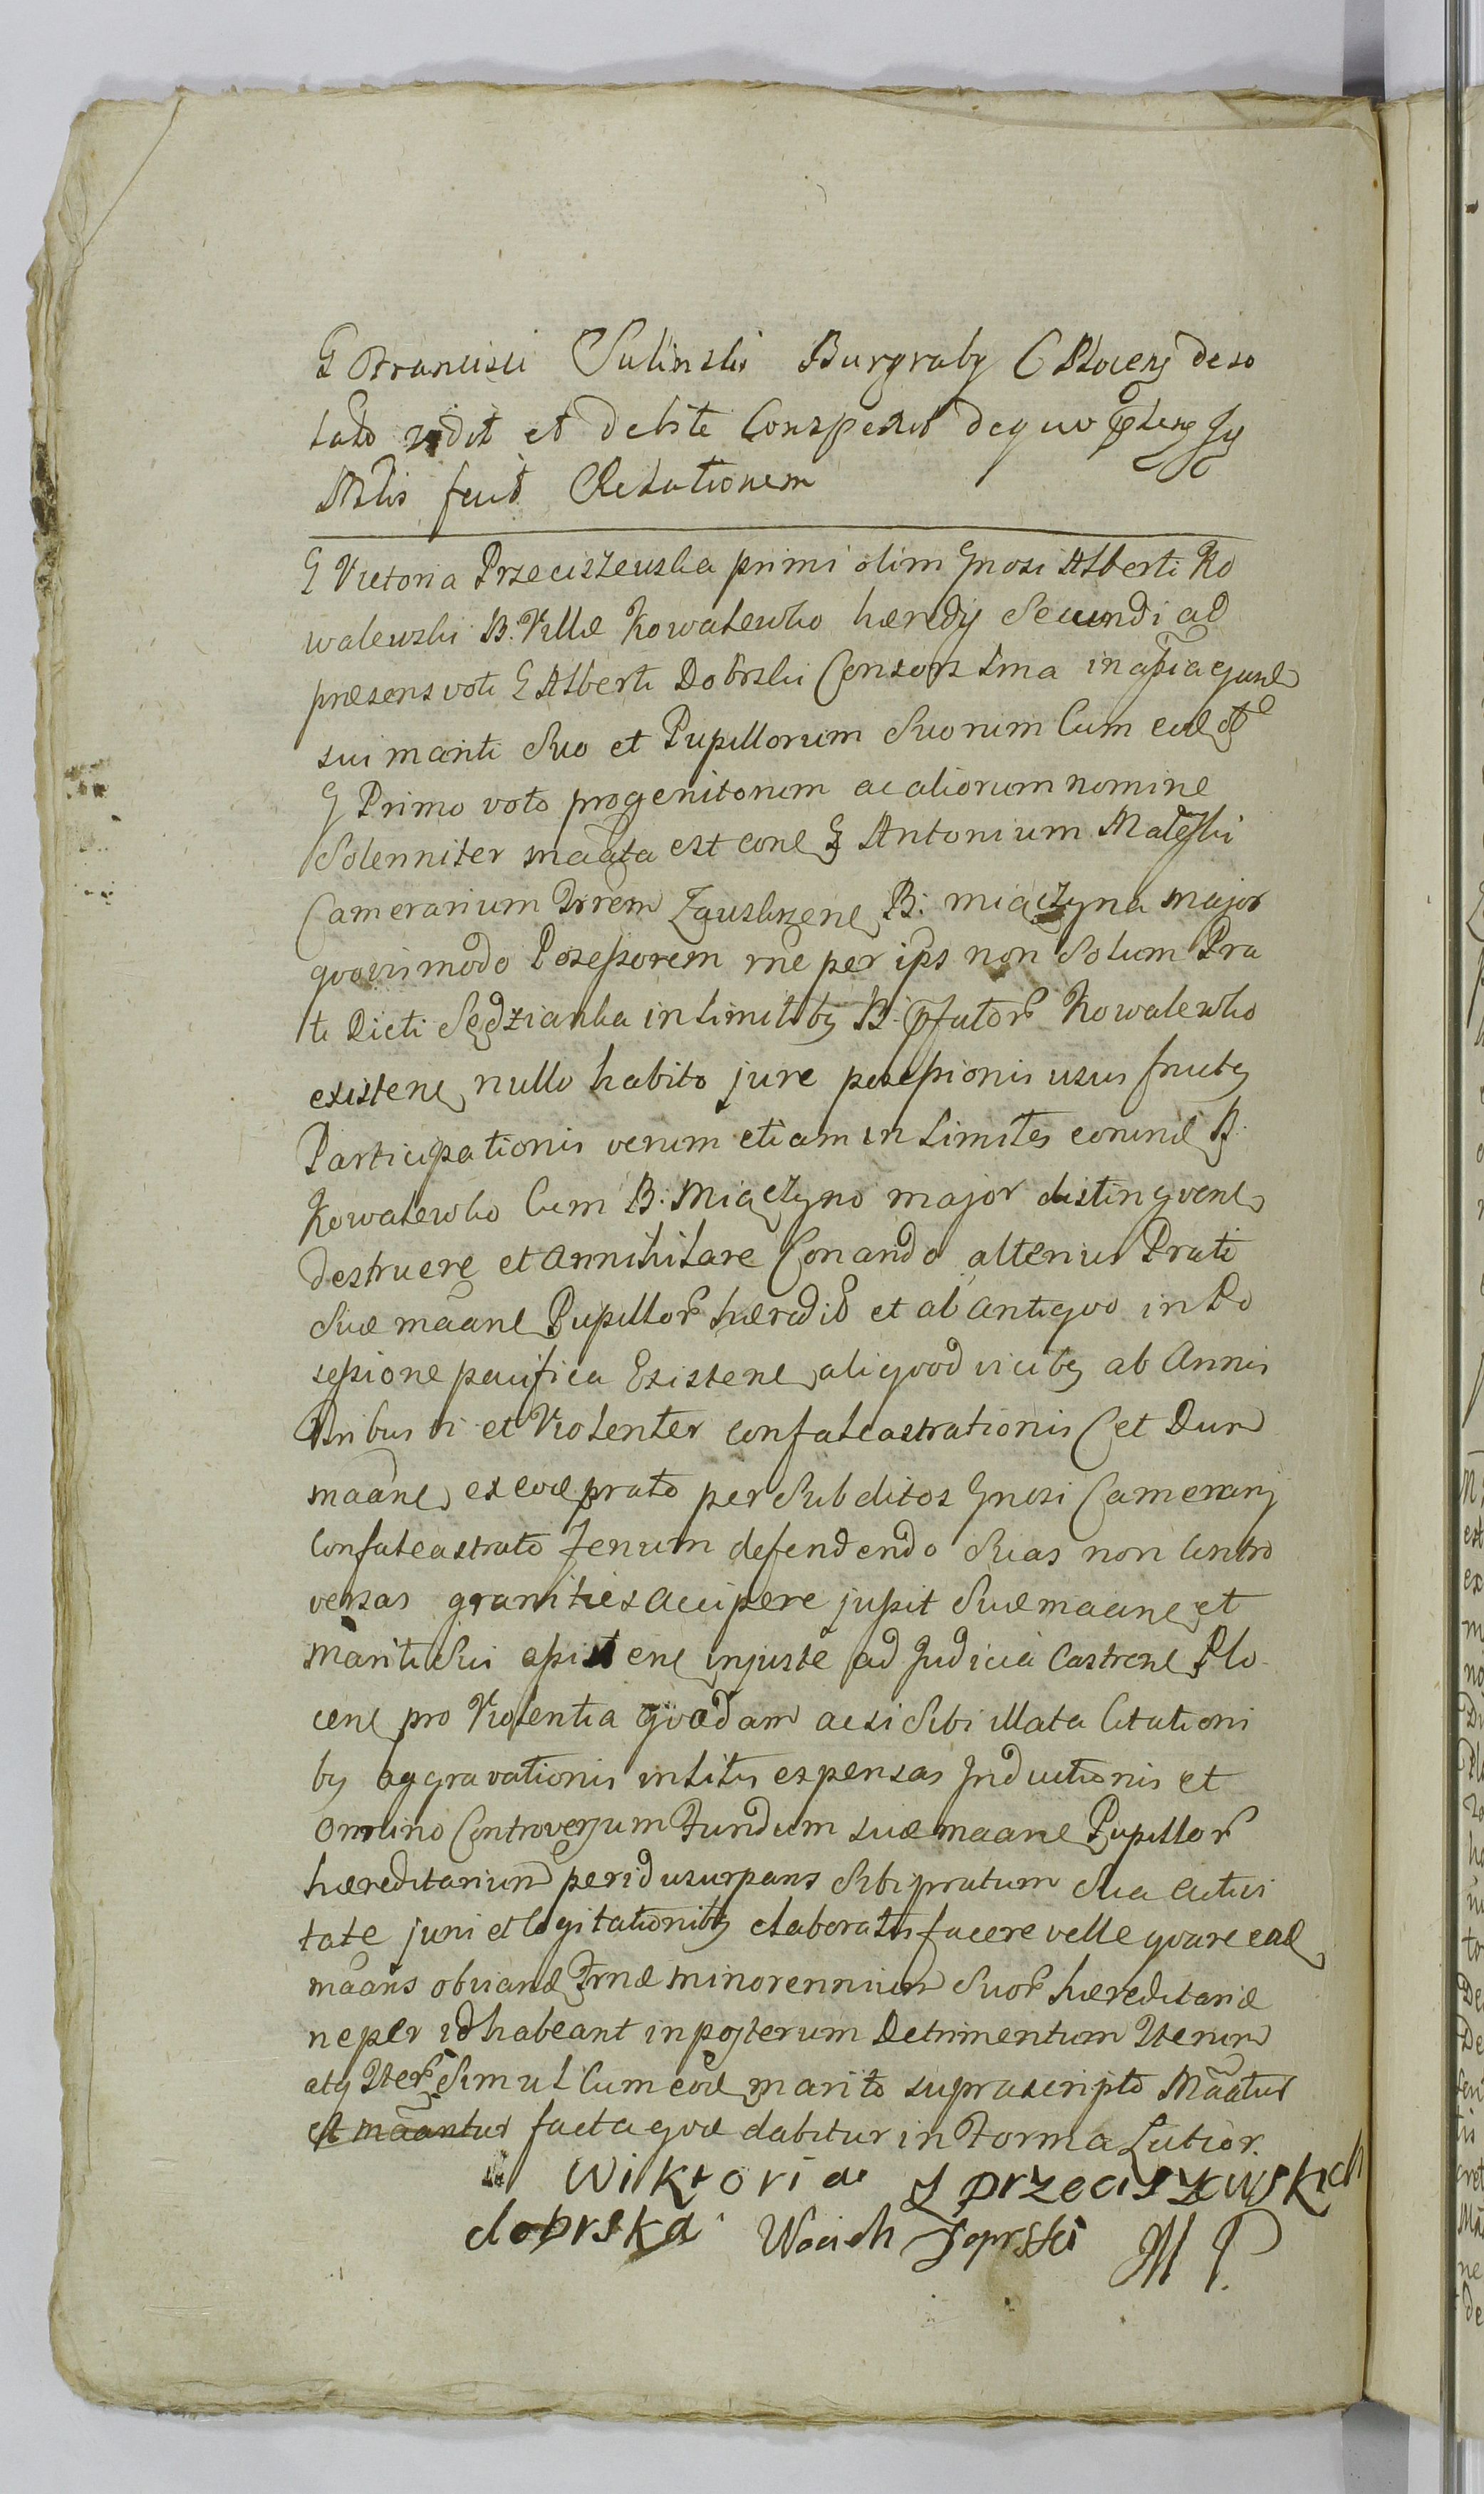 G Francisci Sulinski Burgraby C Plocens de so
lato vidit et debite Conspexit de quo prbns Jy
Mlis fecit Relationem
G Victoria Przeciszewska primi olim Gnosi Alberti Ko
walewski B. Villæ Kowalewko hæredis Secundi ad
præsens voti G Alberti Dobrski Consors Sma in assia ejusd
sui mariti Suo et Pupillorum Suorum Cum eod
G Primo voto progenitorum ac aliorum nomine
Solenniter maãta est con G Antonium
Camerarium Trrem Zauskrzen B: miączyna major
quovismodo Possessorem rne per ips non Solum Pra
ti Dicti Sędzianka in limitibg B: pfator Kowalewko
existen nullo habito jure possessionis usus fructg
Participationis verum etiam in Limites eorund B:
Kowalewko Cum B: Miączyno major distingven
destruere et annihilare Conando alterius Prati
Suæ maãne Pupillor hæredit et ab antiquo in Po
sessione pacifica Existen aliqvod vicibg ab Annis
Tribus vi et Violenter confalcastrationis et Dum
maãne ex eod prato per Subditos Gnosi Camerarij
Confalcastrato Fenum defendendo Suas non Contro
versas granities accipere jussit Suæ maãne et
Mariti Sui assisten injuste ad Judicia Castren Plo
cen pro Violentia qvadam acsi Sibi illata Citationi
bg aggravationis in litis expensas Inductionis et
omnino Controversum Fundum suæ maane Pupillor
hæreditarium per id usurpans Sibi pratum Sua
tate juri et Cogitationibg elaboratis facere velle qvare ead
maãns obviand Frnæ minorennium Suor hæreditariæ
ne per id habeant in posterum Detrimentum Iterum
atq Iter Simul Cum eod marito suprascripto Maãtur
et maãntur facta qvæ dabitur in Forma Latior.
Wiktoria z przeciszewskich
dobrska Wociech Doprski MP